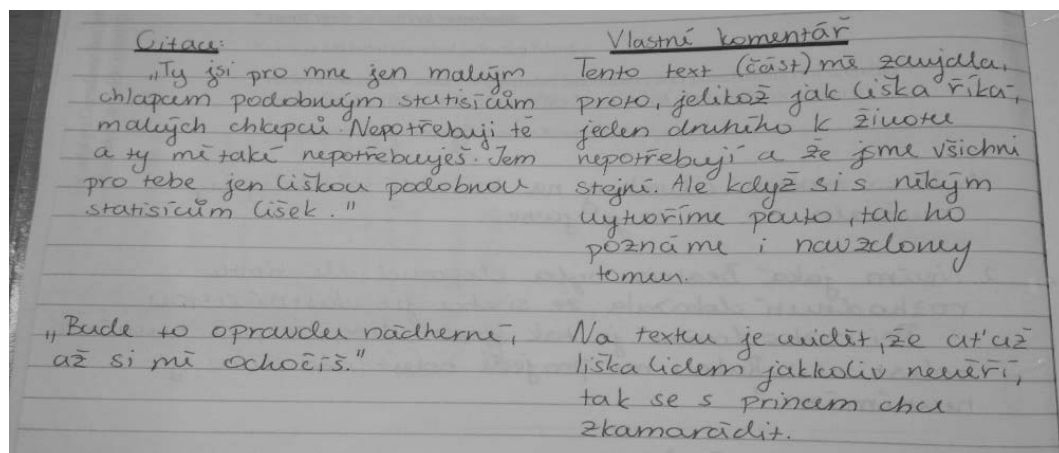 Citace:
„Ty jsi pro mne jen malým
chlapcem podobným statisícům
malých chlapců. Nepotřebuji tě
a ty mě také nepotřebuješ. Jsem
pro tebe jen liškou podobnou
statisícům lišek."
„Bude to opravdu nádherné,
až si mě ochočíš."
Vlastní komentář
Tento text (část) mě zaujala,
proto, jelikož jak liška říká,
jeden druhého k životu
nepotřebují a že jsme všichni
stejní. Ale když si s někým
vytvoříme pouto, tak ho
poznáme i navzdory
tomu.
Na textu je vidět, že ať už
liška lidem jakkoliv nevěří,
tak se s princem chce
zkamarádit.